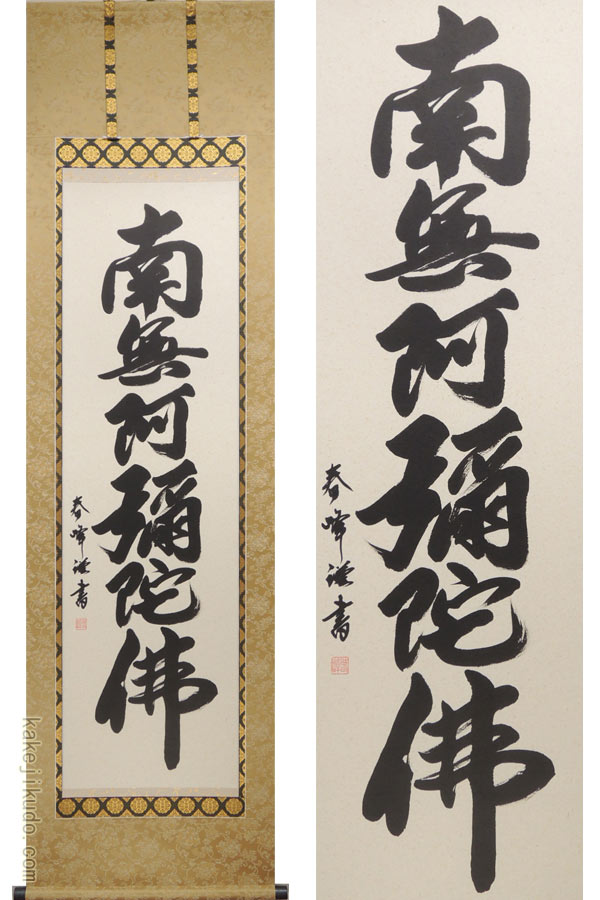 南無阿彌陀佛
春峰謹書
南無阿彌陀佛
春峰謹書
kakejikudo.com